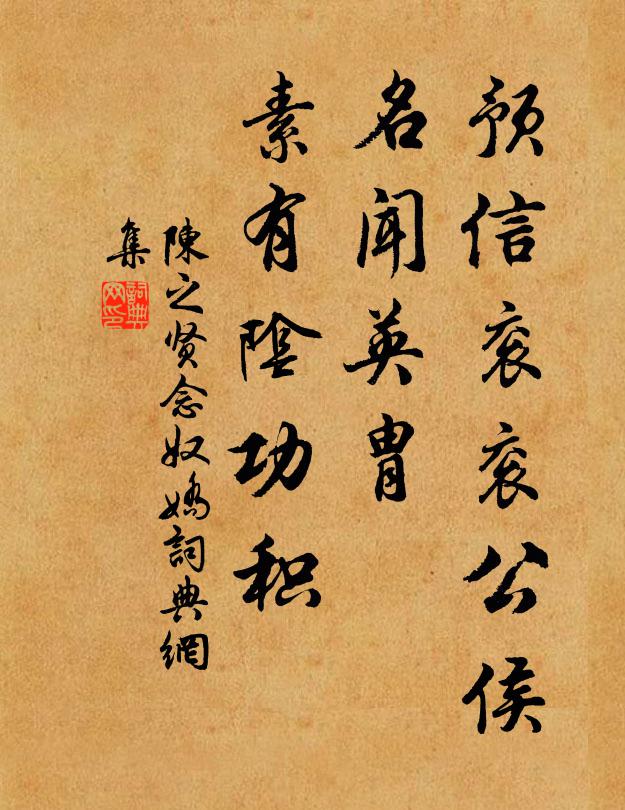 預信衮衮公侯
名闻英胄
素有陰功积
陳之贤念奴嬌詞典網
集
詞典網印